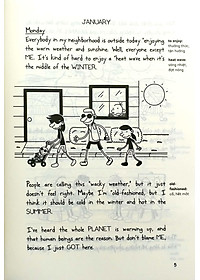 JANUARY
Monday
Everybody in my neighborhood is outside today "enjoying
the warm weather and sunshine. Well, everyone except
ME. It's kind of hard to enjoy a "heat wave when it's
the middle of the WINTER.
to enjoy:
thưởng thức,
tận hưởng
heat wave:
sóng nhiệt,
đợt nóng
People are calling this "wacky weather," but it just
doesn't feel right. Maybe I'm "old-fashioned, but I
think it should be cold in the winter and hot in the
SUMMER.
old-
fashioned:
cổ, hết mốt
I've heard the whole PLANET is warming up, and
that human beings are the reason. But don't blame ME,
because I just GOT here.